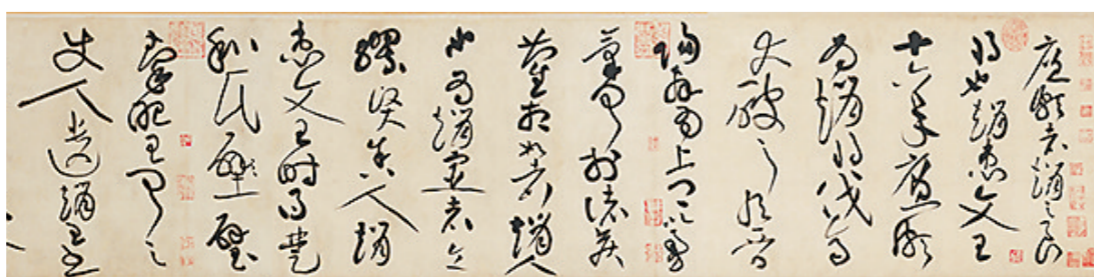 廉頗者趙之良
將也趙惠文王
十六年廉頗
為趙將伐齊
大破之取晉
陽拜為上卿以勇
氣聞於諸侯
藺相如者趙人
也為趙宦者令
繆賢舍人趙
惠文王時得楚
和氏璧
秦昭王聞之
使人遺趙王書